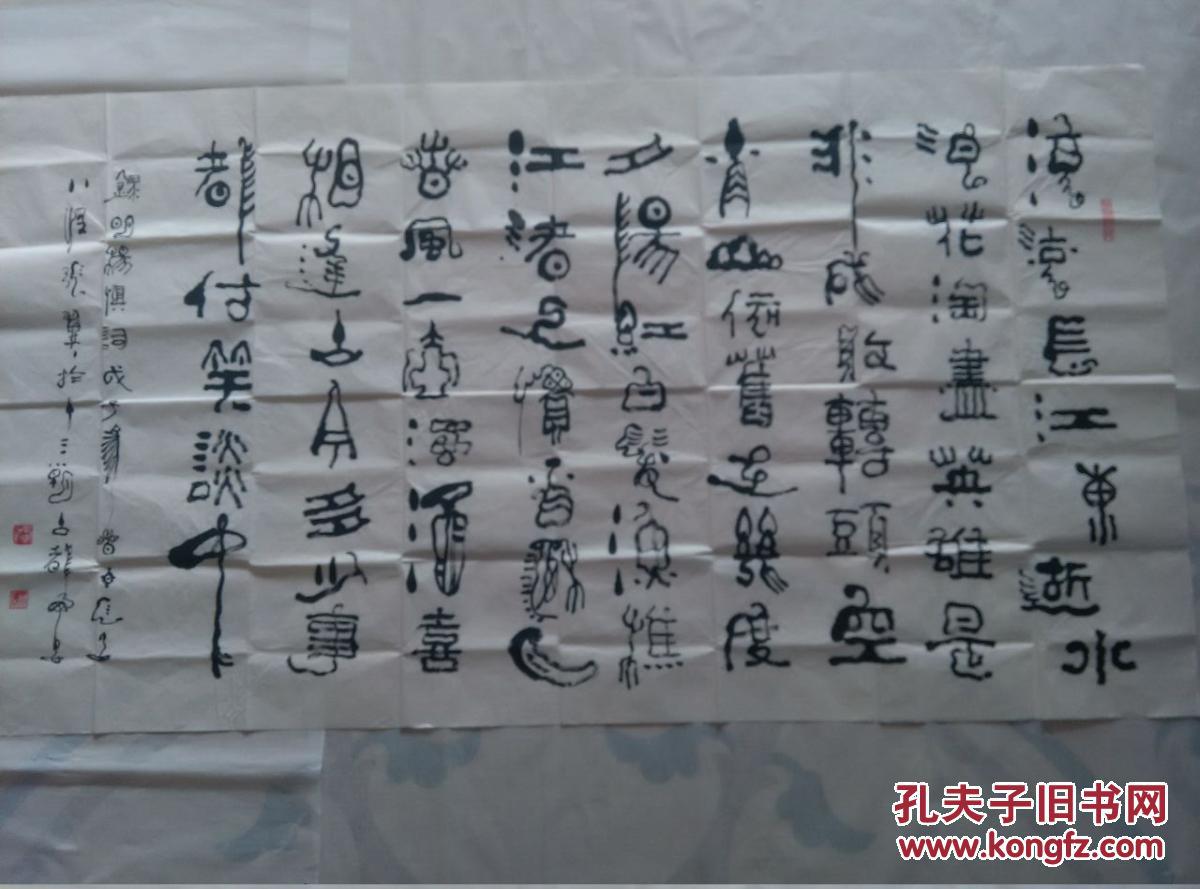 滾滾長江東逝水
浪花淘盡英雄是
非成敗轉頭空
青山依舊在幾度
夕陽紅白髮漁樵
江渚上慣看秋月
春風一壺濁酒喜
相逢古今多少事
都付笑談中
錄明楊慎詞戊子
孔夫子旧书网
www.kongfz.com